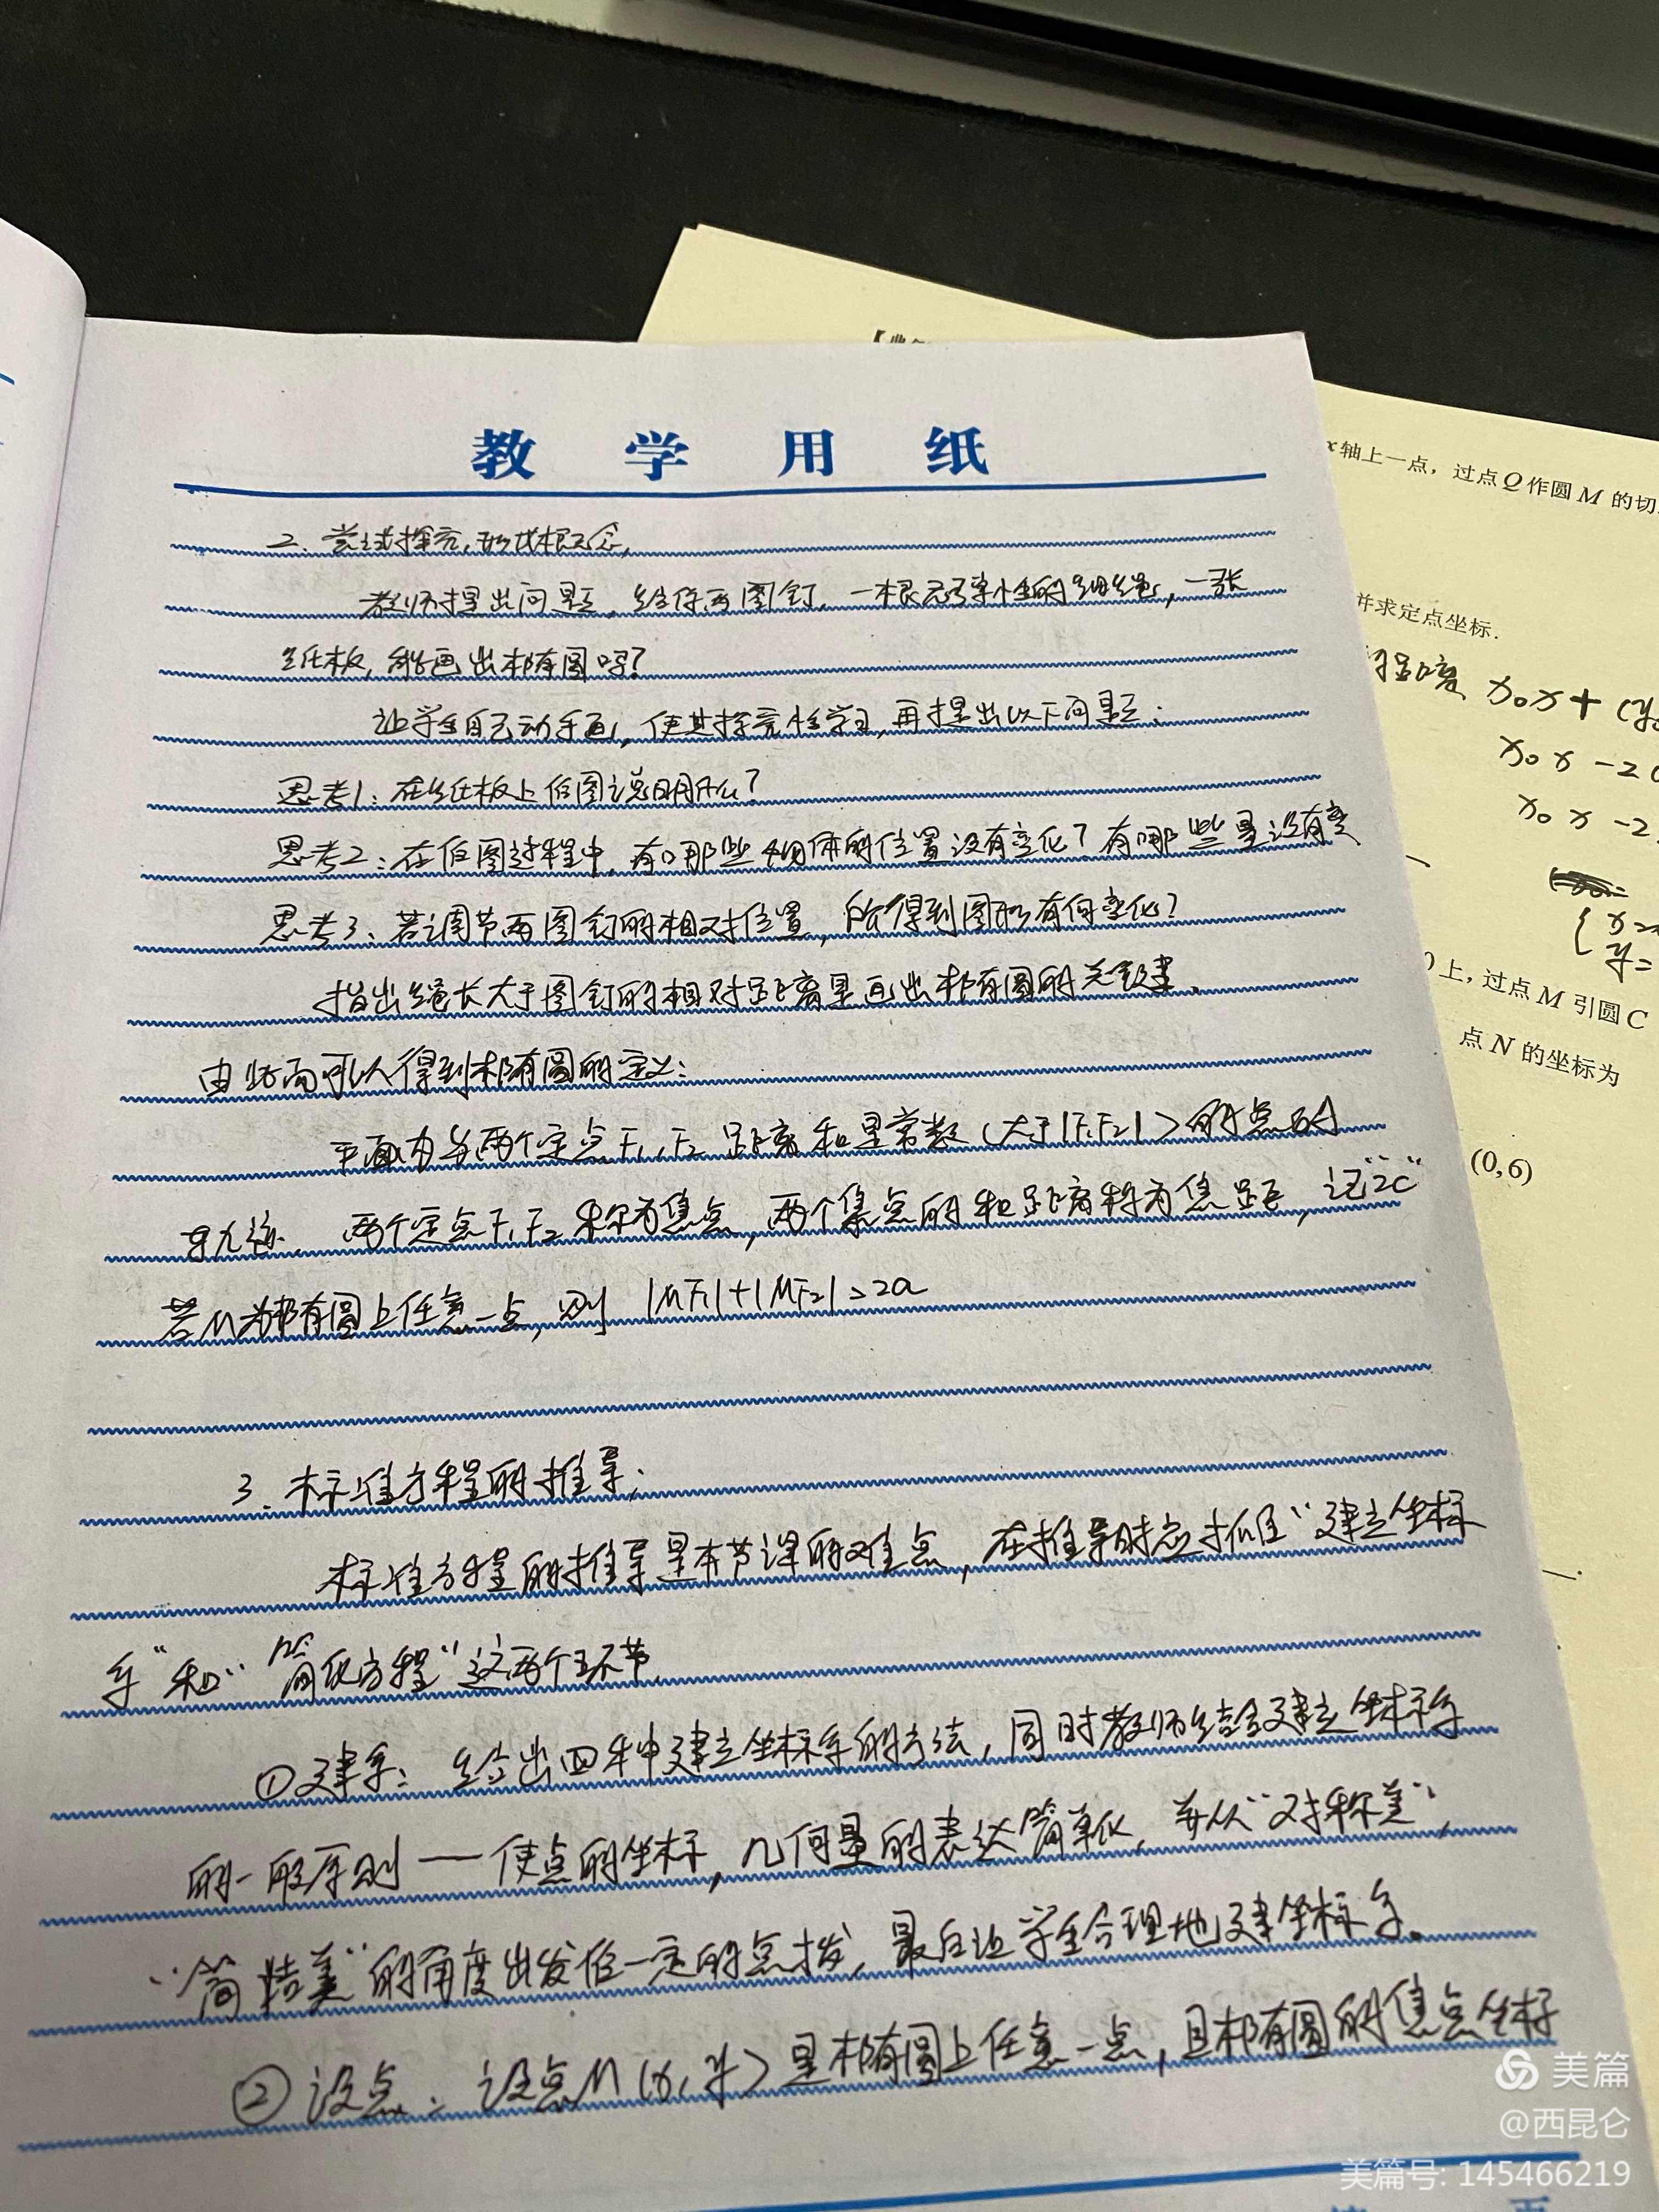 教学用纸
2. 尝试探究,形成概念,
教师提出问题,给你两图钉,一根无弹性的细绳,一张
纸板,能画出椭圆吗?
让学生自己动手画,使其探究性学习,再提出以下问题:
思考1:在纸板上作图说明什么?
思考2:在作图过程中,有哪些物体的位置没有变化?有哪些量没有变
思考3、若调节两图钉的相对位置,所得到图形有何变化?
指出绳长大于图钉的相对距离是画出椭圆的关键.
由此而可以得到椭圆的定义:
平面内与两个定点F₁,F₂距离和是常数(大于|F₁F₂|)的点的
轨迹. 两个定点F₁F₂称为焦点,两个焦点的和距离称为焦距,记"2c"
若M为椭圆上任意一点,则 |MF₁|+|MF₂|=2a
3. 标准方程的推导:
标准方程的推导是本节课的难点,在推导时应抓住"建立坐标
系"和"简化方程"这两个环节.
①建系:给出四种建立坐标系的方法,同时教师结合建立坐标系
的一般原则——使点的坐标,几何量的表达简单化,并从"对称美",
"简洁美"的角度出发作一定的点拨,最后让学生合理地建坐标系。
②设点:设点M(x,y)是椭圆上任意一点,且椭圆的焦点坐标
x轴上一点,过点Q作圆M的切
并求定点坐标.
x₀x+(y₀
x₀x-2
x₀x-2
上,过点M引圆C
点N的坐标为
(0,6)
美篇
@西昆仑
美篇号: 145466219